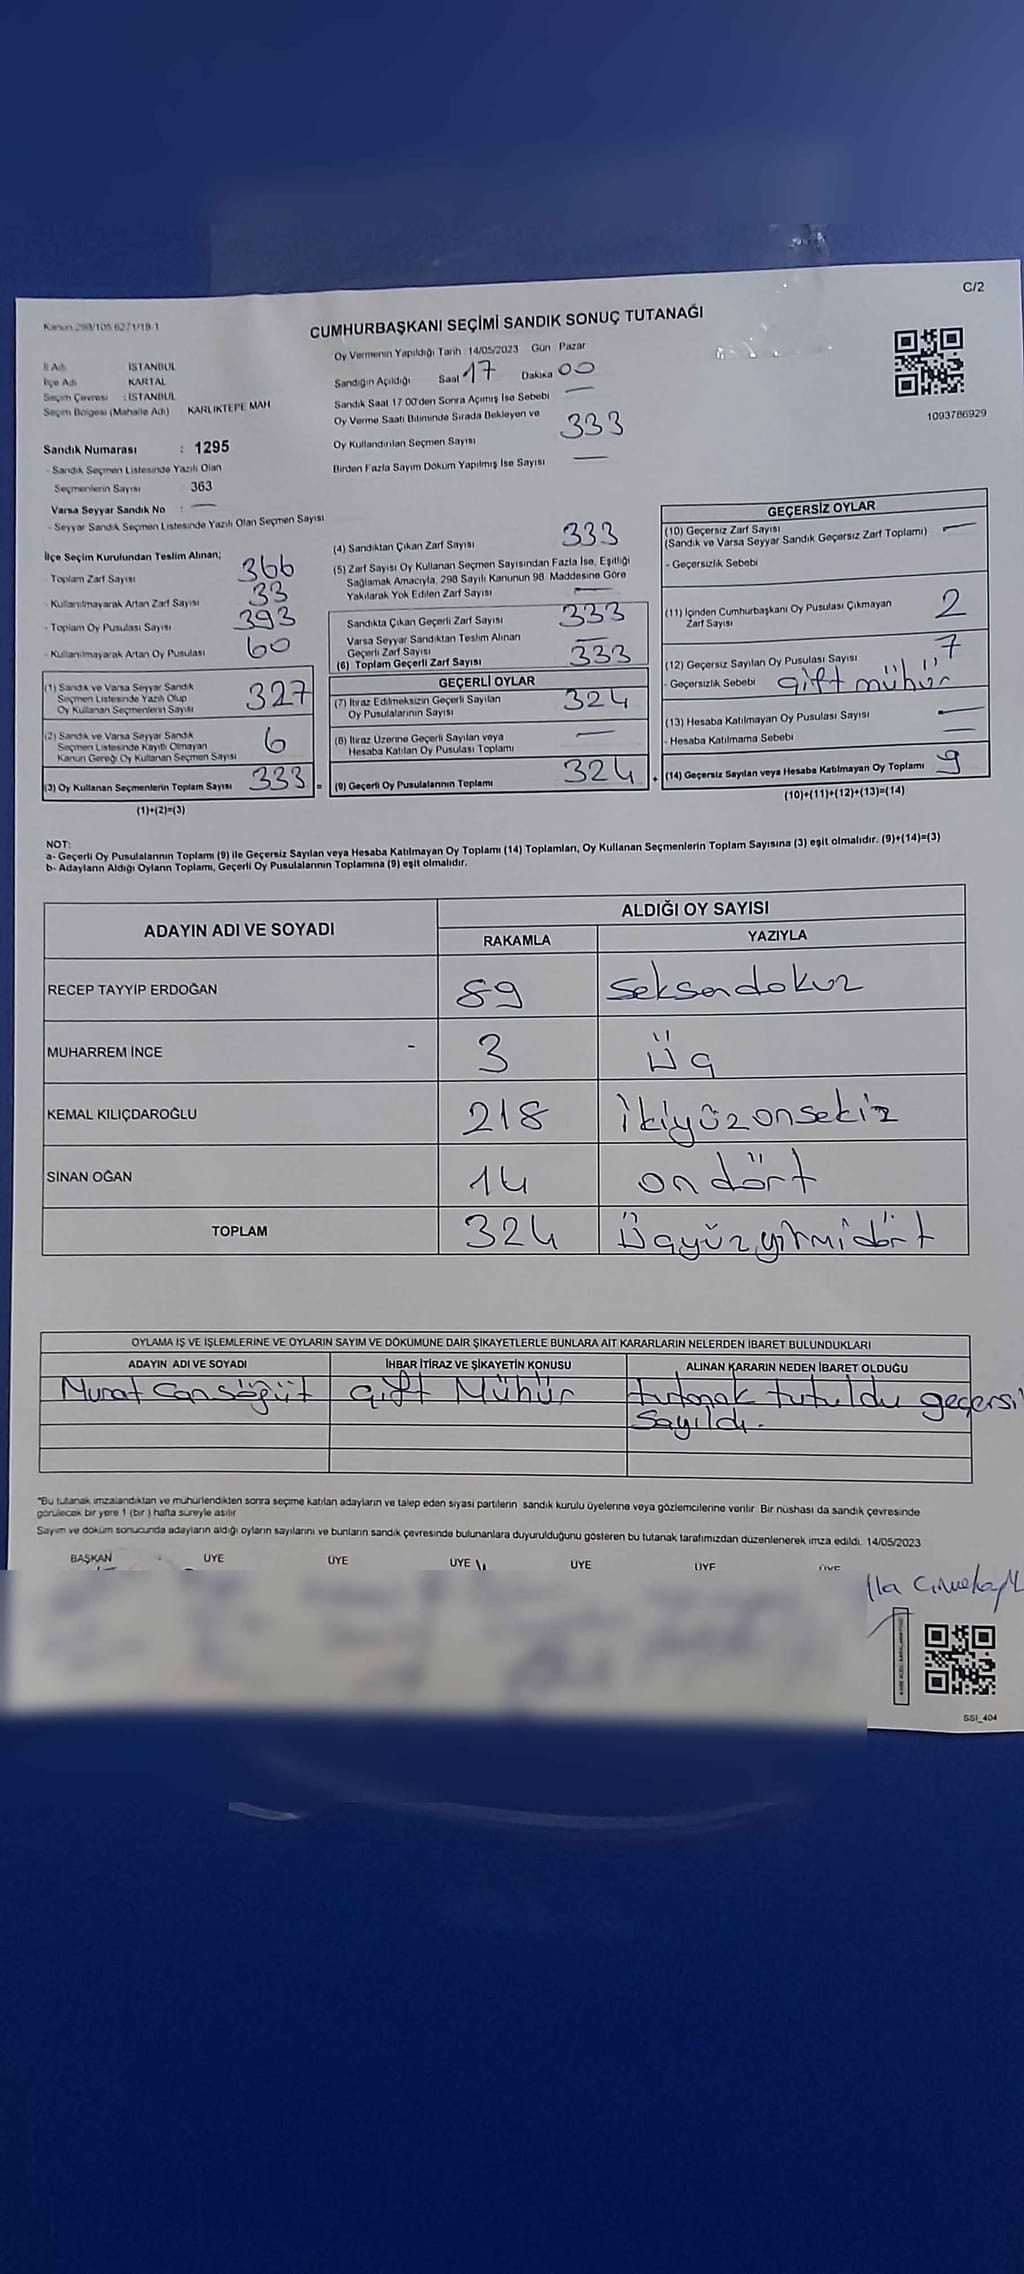 C/2
Kanun 298/105 6271/18-1
CUMHURBAŞKANI SEÇİMİ SANDIK SONUÇ TUTANAĞI
1093786929
İl Adı İSTANBUL
İlçe Adı KARTAL
Seçim Çevresi : İSTANBUL
Seçim Bölgesi (Mahalle Adı) KARLIKTEPE MAH
Sandık Numarası : 1295
- Sandık Seçmen Listesinde Yazılı Olan
Seçmenlerin Sayısı : 363
Varsa Seyyar Sandık No : —
- Seyyar Sandık Seçmen Listesinde Yazılı Olan Seçmen Sayısı
Oy Vermenin Yapıldığı Tarih : 14/05/2023 Gün : Pazar
Sandığın Açıldığı Saat 17 Dakika 00
Sandık Saat 17:00'den Sonra Açımış İse Sebebi —
Oy Verme Saati Bitiminde Sırada Bekleyen ve
Oy Kullandırılan Seçmen Sayısı 333
Birden Fazla Sayım Döküm Yapılmış İse Sayısı —
İlçe Seçim Kurulundan Teslim Alınan;
- Toplam Zarf Sayısı 366
- Kullanılmayarak Artan Zarf Sayısı 33
- Toplam Oy Pusulası Sayısı 393
- Kullanılmayarak Artan Oy Pusulası 60
(1) Sandık ve Varsa Seyyar Sandık
Seçmen Listesinde Yazılı Olup
Oy Kullanan Seçmenlerin Sayısı 327
(2) Sandık ve Varsa Seyyar Sandık
Seçmen Listesinde Kayıtlı Olmayan
Kanun Gereği Oy Kullanan Seçmen Sayısı 6
(3) Oy Kullanan Seçmenlerin Toplam Sayısı 333 =
(1)+(2)=(3)
(4) Sandıktan Çıkan Zarf Sayısı 333
(5) Zarf Sayısı Oy Kullanan Seçmen Sayısından Fazla İse, Eşitliği
Sağlamak Amacıyla, 298 Sayılı Kanunun 98. Maddesine Göre
Yakılarak Yok Edilen Zarf Sayısı —
Sandıkta Çıkan Geçerli Zarf Sayısı 333
Varsa Seyyar Sandıktan Teslim Alınan
Geçerli Zarf Sayısı —
(6) Toplam Geçerli Zarf Sayısı 333
GEÇERLİ OYLAR
(7) İtiraz Edilmeksizin Geçerli Sayılan
Oy Pusulalarının Sayısı 324
(8) İtiraz Üzerine Geçerli Sayılan veya
Hesaba Katılan Oy Pusulası Toplamı —
(9) Geçerli Oy Pusulalarının Toplamı 324 +
GEÇERSİZ OYLAR
(10) Geçersiz Zarf Sayısı
(Sandık ve Varsa Seyyar Sandık Geçersiz Zarf Toplamı) —
- Geçersizlik Sebebi
(11) İçinden Cumhurbaşkanı Oy Pusulası Çıkmayan
Zarf Sayısı 2
(12) Geçersiz Sayılan Oy Pusulası Sayısı 7
- Geçersizlik Sebebi çift mühür
(13) Hesaba Katılmayan Oy Pusulası Sayısı —
- Hesaba Katılmama Sebebi —
(14) Geçersiz Sayılan veya Hesaba Katılmayan Oy Toplamı 9
(10)+(11)+(12)+(13)=(14)
NOT:
a- Geçerli Oy Pusulalarının Toplamı (9) ile Geçersiz Sayılan veya Hesaba Katılmayan Oy Toplamı (14) Toplamları, Oy Kullanan Seçmenlerin Toplam Sayısına (3) eşit olmalıdır. (9)+(14)=(3)
b- Adayların Aldığı Oyların Toplamı, Geçerli Oy Pusulalarının Toplamına (9) eşit olmalıdır.
ADAYIN ADI VE SOYADI ALDIĞI OY SAYISI
RAKAMLA YAZIYLA
RECEP TAYYİP ERDOĞAN 89 seksendokuz
MUHARREM İNCE - 3 üç
KEMAL KILIÇDAROĞLU 218 ikiyüzonsekiz
SİNAN OĞAN 14 ondört
TOPLAM 324 üçyüzyirmidört
OYLAMA İŞ VE İŞLEMLERİNE VE OYLARIN SAYIM VE DÖKÜMÜNE DAİR ŞİKAYETLERLE BUNLARA AİT KARARLARIN NELERDEN İBARET BULUNDUKLARI
ADAYIN ADI VE SOYADI İHBAR İTİRAZ VE ŞİKAYETİN KONUSU ALINAN KARARIN NEDEN İBARET OLDUĞU
Murat Can Söğüt çift Mühür tutanak tutuldu geçersi
sayıldı.
"Bu tutanak imzalandıktan ve mühürlendikten sonra seçime katılan adayların ve talep eden siyasi partilerin sandık kurulu üyelerine veya gözlemcilerine verilir. Bir nüshası da sandık çevresinde
görülecek bir yere 1 (bir ) hafta süreyle asılır
Sayım ve döküm sonucunda adayların aldığı oyların sayılarını ve bunların sandık çevresinde bulunanlara duyurulduğunu gösteren bu tutanak tarafımızdan düzenlenerek imza edildi. 14/05/2023
BAŞKAN ÜYE ÜYE ÜYE ÜYE ÜYE ÜYE
SSI_404